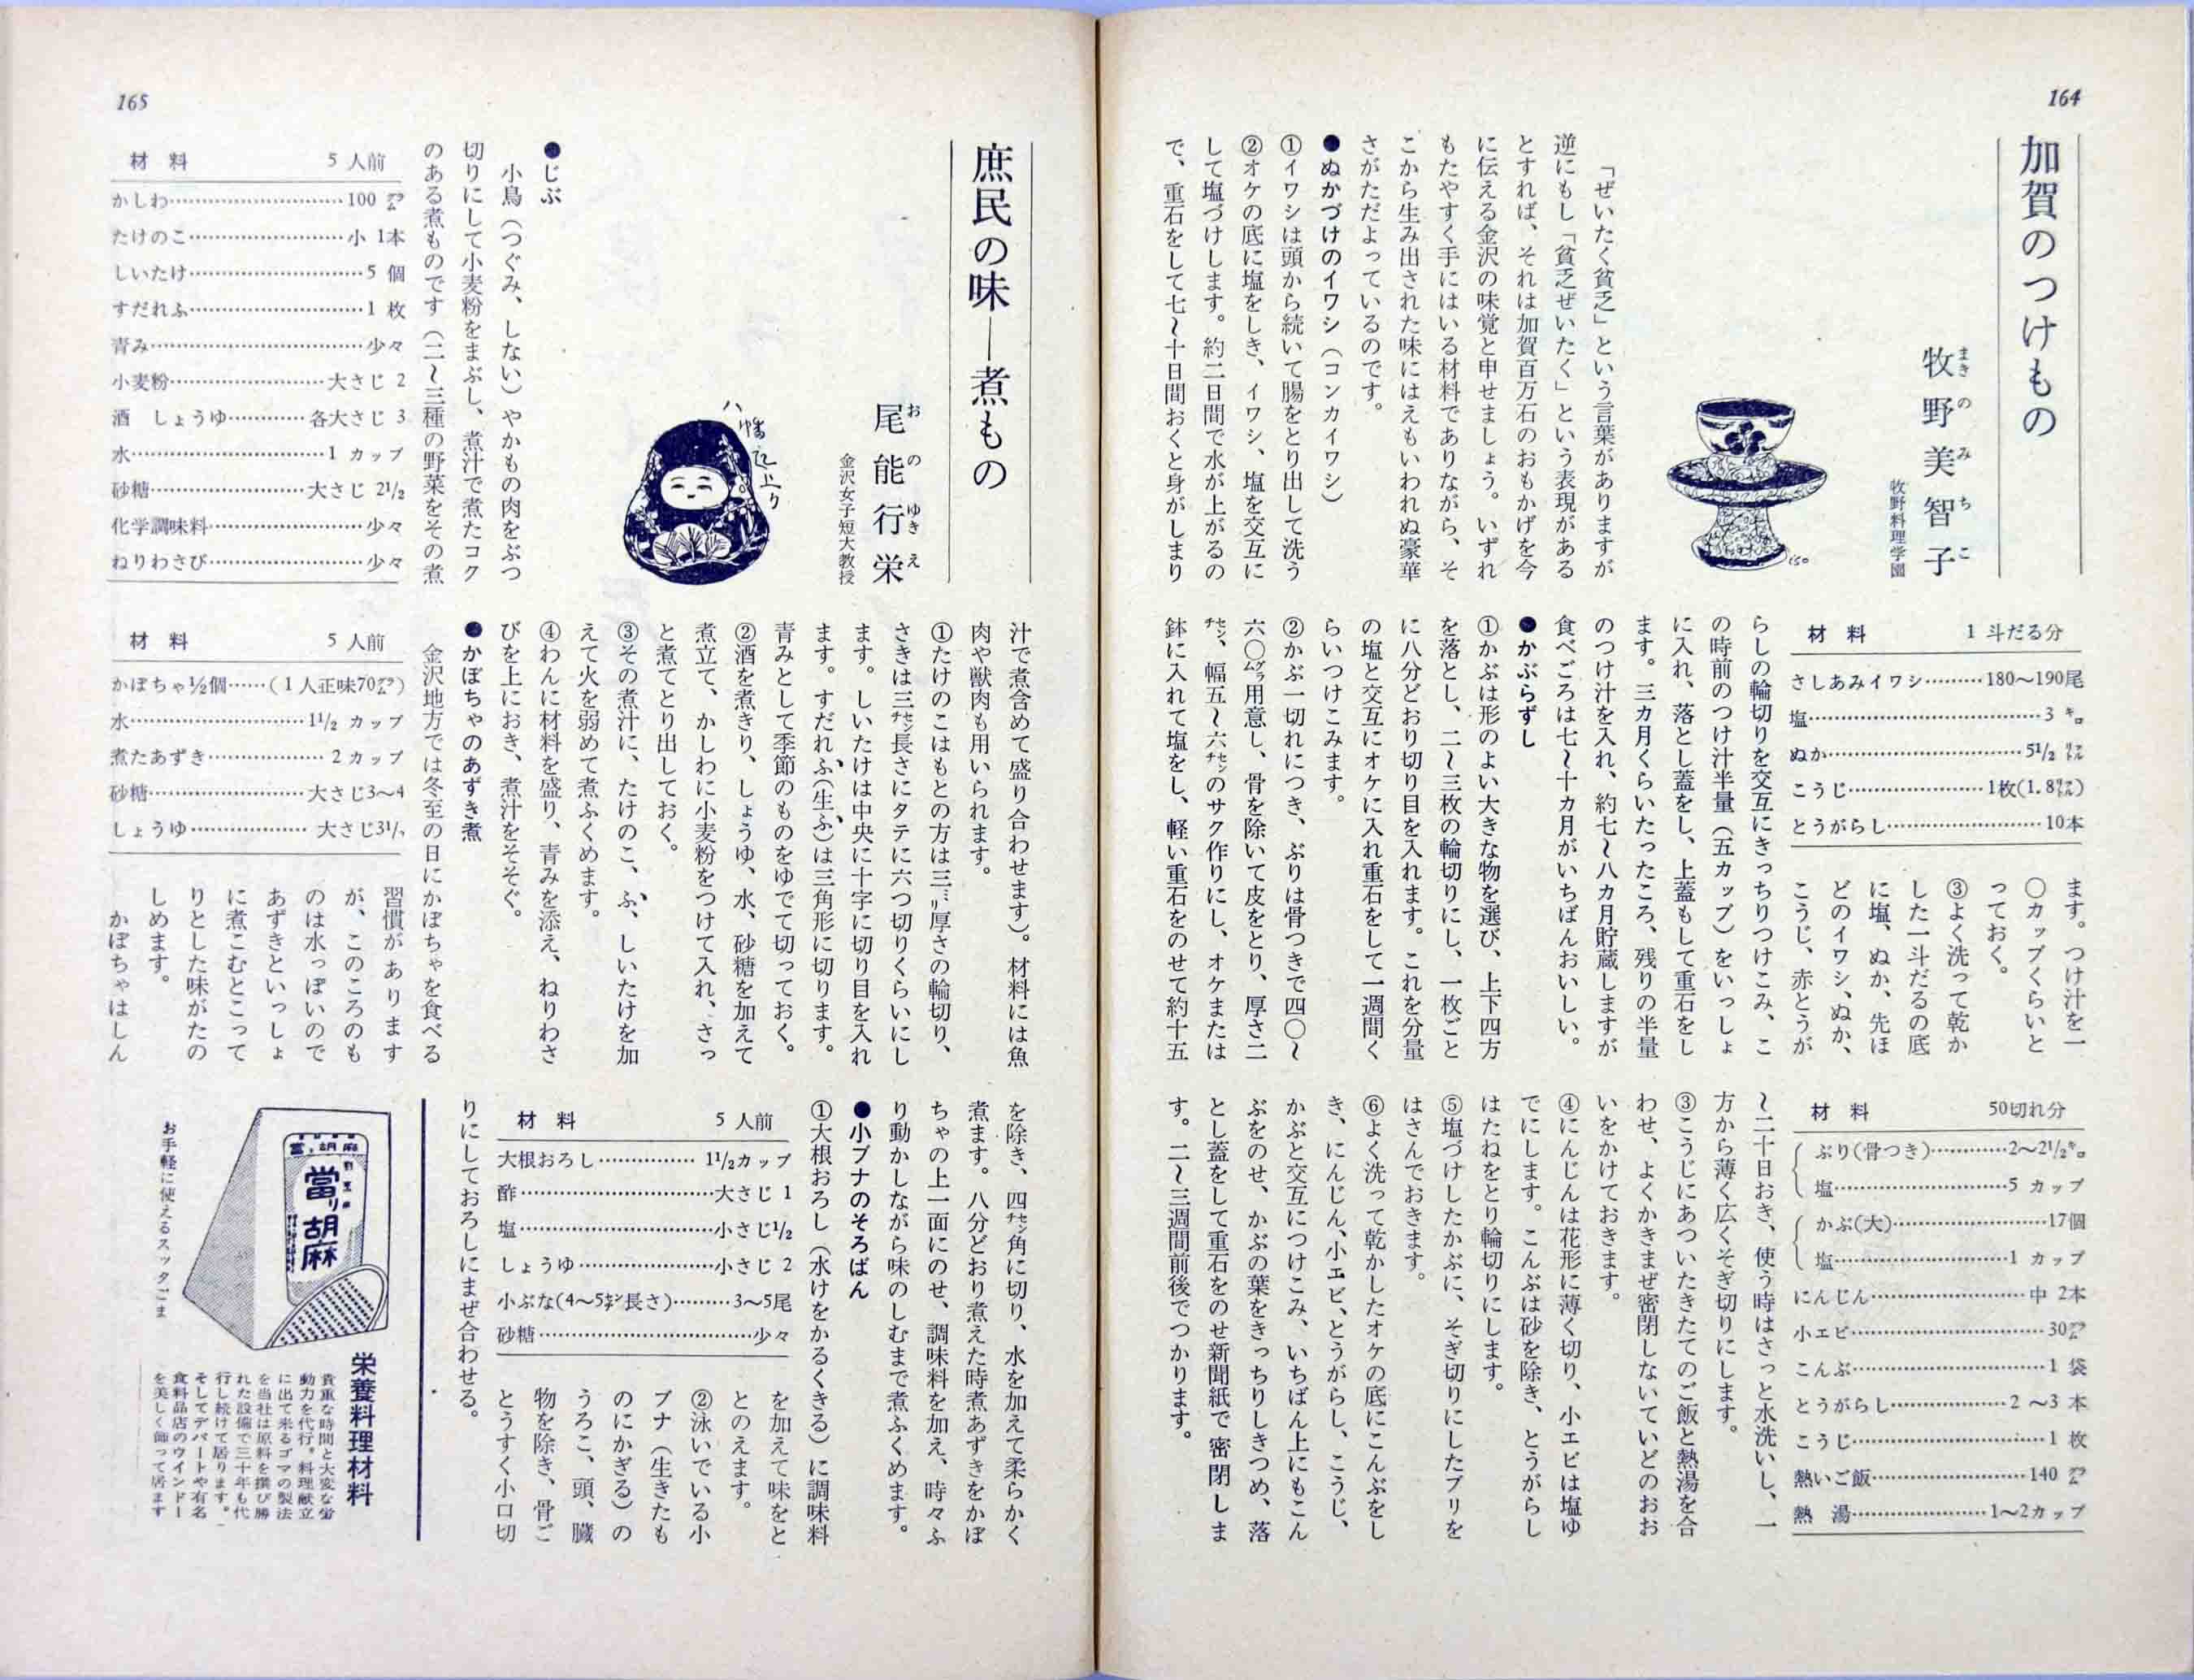 164
加賀のつけもの
牧野美智子
まきのみちこ
牧野料理学園
「ぜいたく貧乏」という言葉がありますが
逆にもし「貧乏ぜいたく」という表現がある
とすれば、それは加賀百万石のおもかげを今
に伝える金沢の味覚と申せましょう。いずれ
もたやすく手にはいる材料でありながら、そ
こから生み出された味にはえもいわれぬ豪華
さがただよっているのです。
●ぬかづけのイワシ（コンカイワシ）
①イワシは頭から続いて腸をとり出して洗う
②オケの底に塩をしき、イワシ、塩を交互に
して塩づけします。約二日間で水が上がるの
で、重石をして七〜十日間おくと身がしまり
材料 1斗だる分
さしあみイワシ………180〜190尾
塩………3㌔
ぬか………5½㍑
こうじ………1枚(1.8㍑)
とうがらし………10本
ます。つけ汁を一
〇カップくらいと
っておく。
③よく洗って乾か
した一斗だるの底
に塩、ぬか、先ほ
どのイワシ、ぬか、
こうじ、赤とうが
らしの輪切りを交互にきっちりつけこみ、こ
の時前のつけ汁半量（五カップ）をいっしょ
に入れ、落とし蓋をし、上蓋もして重石をし
ます。三カ月くらいたったころ、残りの半量
のつけ汁を入れ、約七〜八カ月貯蔵しますが
食べごろは七〜十カ月がいちばんおいしい。
●かぶらずし
①かぶは形のよい大きな物を選び、上下四方
を落とし、二〜三枚の輪切りにし、一枚ごと
に八分どおり切り目を入れます。これを分量
の塩と交互にオケに入れ重石をして一週間く
らいつけこみます。
②かぶ一切れにつき、ぶりは骨つきで四〇〜
六〇㌘用意し、骨を除いて皮をとり、厚さ二
㌢、幅五〜六㌢のサク作りにし、オケまたは
鉢に入れて塩をし、軽い重石をのせて約十五
材料 50切れ分
ぶり(骨つき)………2〜2½㌔
塩………5 カップ
かぶ(大)………17個
塩………1 カップ
にんじん………中 2本
小エビ………30㌘
こんぶ………1 袋
とうがらし………2〜3 本
こうじ………1 枚
熱いご飯………140㌘
熱　湯………1〜2カップ
〜二十日おき、使う時はさっと水洗いし、一
方から薄く広くそぎ切りにします。
③こうじにあついたきたてのご飯と熱湯を合
わせ、よくかきまぜ密閉しないていどのおお
いをかけておきます。
④にんじんは花形に薄く切り、小エビは塩ゆ
でにします。こんぶは砂を除き、とうがらし
はたねをとり輪切りにします。
⑤塩づけしたかぶに、そぎ切りにしたブリを
はさんでおきます。
⑥よく洗って乾かしたオケの底にこんぶをし
き、にんじん、小エビ、とうがらし、こうじ、
かぶと交互につけこみ、いちばん上にもこん
ぶをのせ、かぶの葉をきっちりしきつめ、落
とし蓋をして重石をのせ新聞紙で密閉しま
す。二〜三週間前後でつかります。
165
庶民の味—煮もの
尾能行栄
おのゆきえ
金沢女子短大教授
八幡起上り
●じぶ
小鳥（つぐみ、しない）やかもの肉をぶつ
切りにして小麦粉をまぶし、煮汁で煮たコク
のある煮ものです（二〜三種の野菜をその煮
材料 5人前
かしわ………100㌘
たけのこ………小 1本
しいたけ………5 個
すだれふ………1 枚
青み………少々
小麦粉………大さじ 2
酒　しょうゆ………各大さじ 3
水………1 カップ
砂糖………大さじ 2½
化学調味料………少々
ねりわさび………少々
汁で煮含めて盛り合わせます）。材料には魚
肉や獣肉も用いられます。
①たけのこはもとの方は三㍉厚さの輪切り、
さきは三㌢長さにタテに六つ切りくらいにし
ます。しいたけは中央に十字に切り目を入れ
ます。すだれふ（生ふ）は三角形に切ります。
青みとして季節のものをゆでて切っておく。
②酒を煮きり、しょうゆ、水、砂糖を加えて
煮立て、かしわに小麦粉をつけて入れ、さっ
と煮てとり出しておく。
③その煮汁に、たけのこ、ふ、しいたけを加
えて火を弱めて煮ふくめます。
④わんに材料を盛り、青みを添え、ねりわさ
びを上におき、煮汁をそそぐ。
●かぼちゃのあずき煮
金沢地方では冬至の日にかぼちゃを食べる
材料 5人前
かぼちゃ½個……(1人正味70㌘)
水………1½ カップ
煮たあずき………2 カップ
砂糖………大さじ3〜4
しょうゆ………大さじ3½
習慣があります
が、このころのも
のは水っぽいので
あずきといっしょ
に煮こむとこって
りとした味がたの
しめます。
かぼちゃはしん
を除き、四㌢角に切り、水を加えて柔らかく
煮ます。八分どおり煮えた時煮あずきをかぼ
ちゃの上一面にのせ、調味料を加え、時々ふ
り動かしながら味のしむまで煮ふくめます。
●小ブナのそろばん
①大根おろし（水けをかるくきる）に調味料
材料 5人前
大根おろし………1½カップ
酢………大さじ 1
塩………小さじ½
しょうゆ………小さじ 2
小ぶな(4〜5㌢長さ)………3〜5尾
砂糖………少々
を加えて味をと
とのえます。
②泳いでいる小
ブナ（生きたも
のにかぎる）の
うろこ、頭、臓
物を除き、骨ご
とうすく小口切
りにしておろしにまぜ合わせる。
當り胡麻
當り胡麻
お手軽に使えるスッタごま
栄養料理材料
貴重な時間と大変な労
動力を代行。料理献立
に出て来るゴマの製法
を当社は原料を撰び勝
れた設備で三十年も代
行し続けて居ります。
そしてデパートや有名
食料品店のウインドー
を美しく飾って居ます